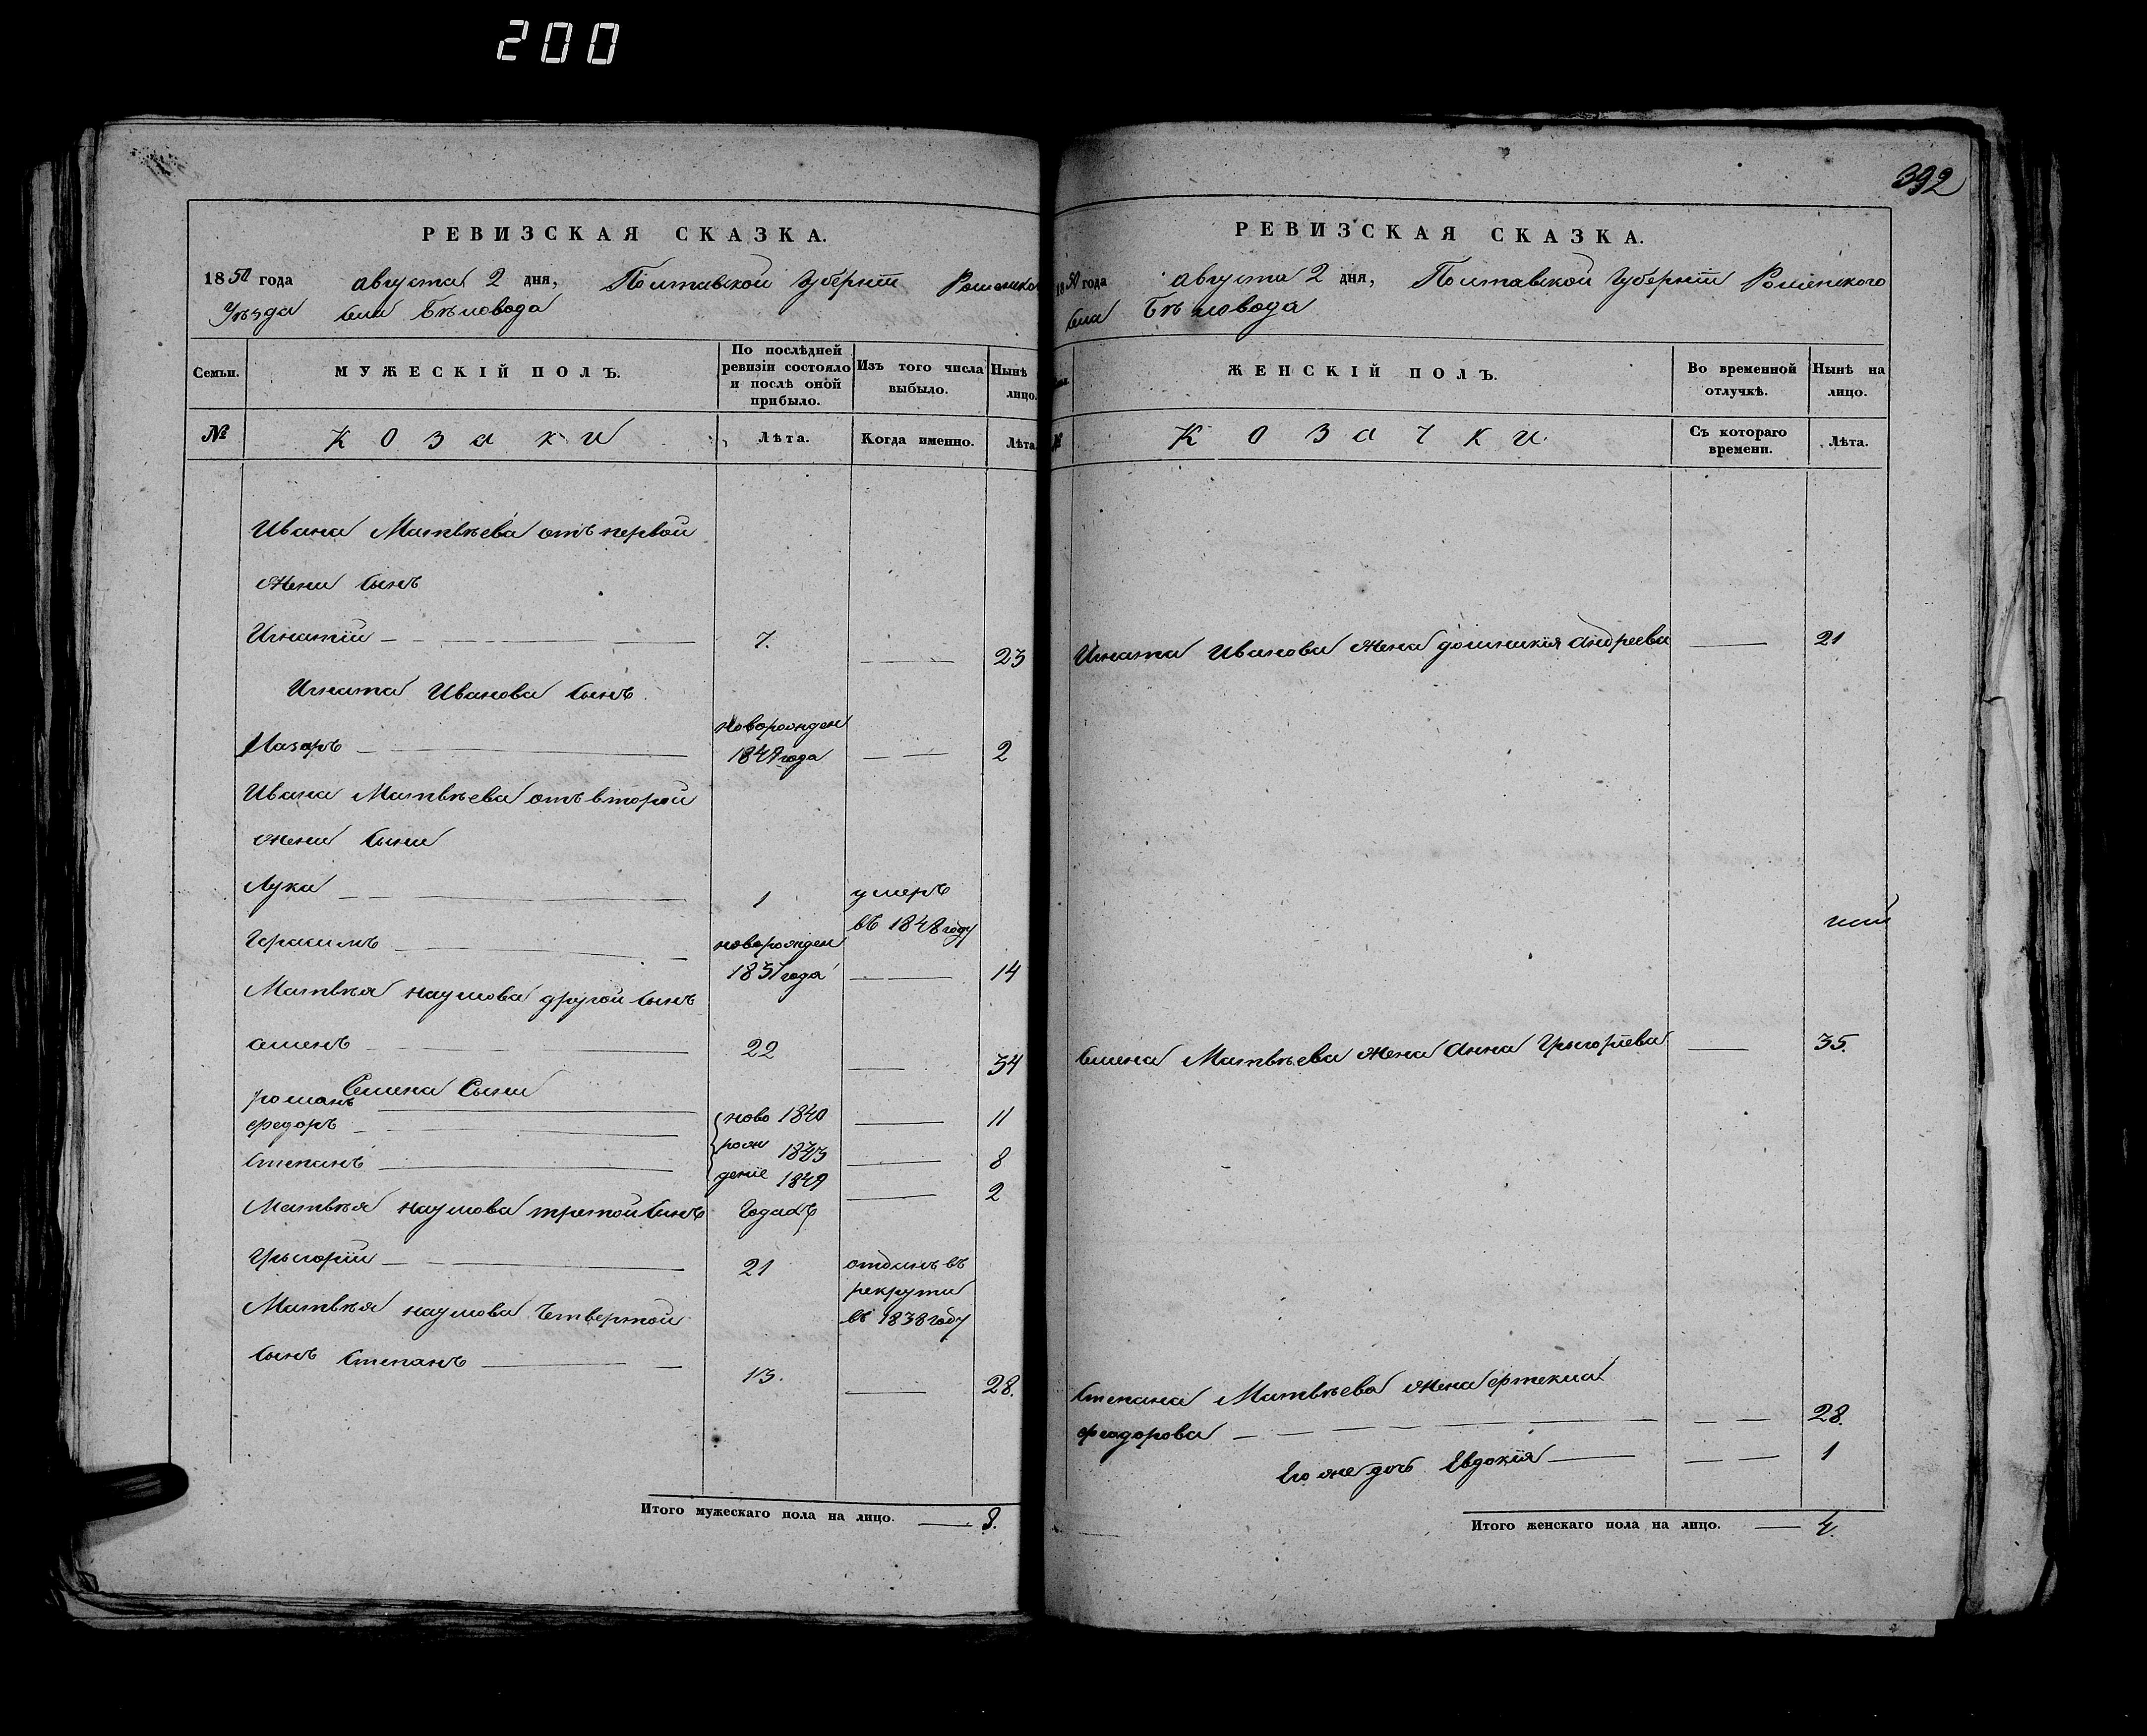 200
РЕВИЗСКАЯ СКАЗКА.
1850 года августа 2 дня, Полтавской Губерніи Роменског
Уѣзда села Бѣловода
Семьи.
МУЖЕСКІЙ ПОЛЪ.
По послѣдней ревизіи состояло и послѣ оной прибыло.
Изъ того числа выбыло.
Нынѣ лицо.
№
Козаки
Лѣта.
Когда именно.
Лѣта
Ивана Матвѣева отъ первой
жени сынъ
Игнатій 7. 23
Игната Иванова сынъ
Назаръ новорожден 1848 года 2
Ивана Матвѣева отъ второй
жени сыни
Лука 1 умеръ въ 1848 году
Герасимъ новорожден 1837 года 14
Матвѣя Наумова другой сынъ
Семенъ 22 34
Семена Сыни
романъ ново 1840 11
федоръ рож 1843 8
Степанъ деніе 1849 2
Матвѣя Наумова третой сынъ Годахъ
Григорій 21 отданъ въ рекрути въ 1838 году
Матвѣя Наумова Четвертой
сынъ Степанъ 13. 28.
Итого мужескаго пола на лицо. 8.
392
РЕВИЗСКАЯ СКАЗКА.
1850 года августа 2 дня, Полтавской Губерніи Роменского
села Бѣловода
ЖЕНСКІЙ ПОЛЪ.
Во временной отлучкѣ.
Нынѣ на лицо.
№
Козачки.
Съ котораго времени.
Лѣта.
Игната Иванова жена домникія Андреева 21
Семена Матвѣева жена Анна Григоріева 35.
Степана Матвѣева жена
феодорова 28.
Его же дочь Евдокія 1
Итого женскаго пола на лицо. 4.